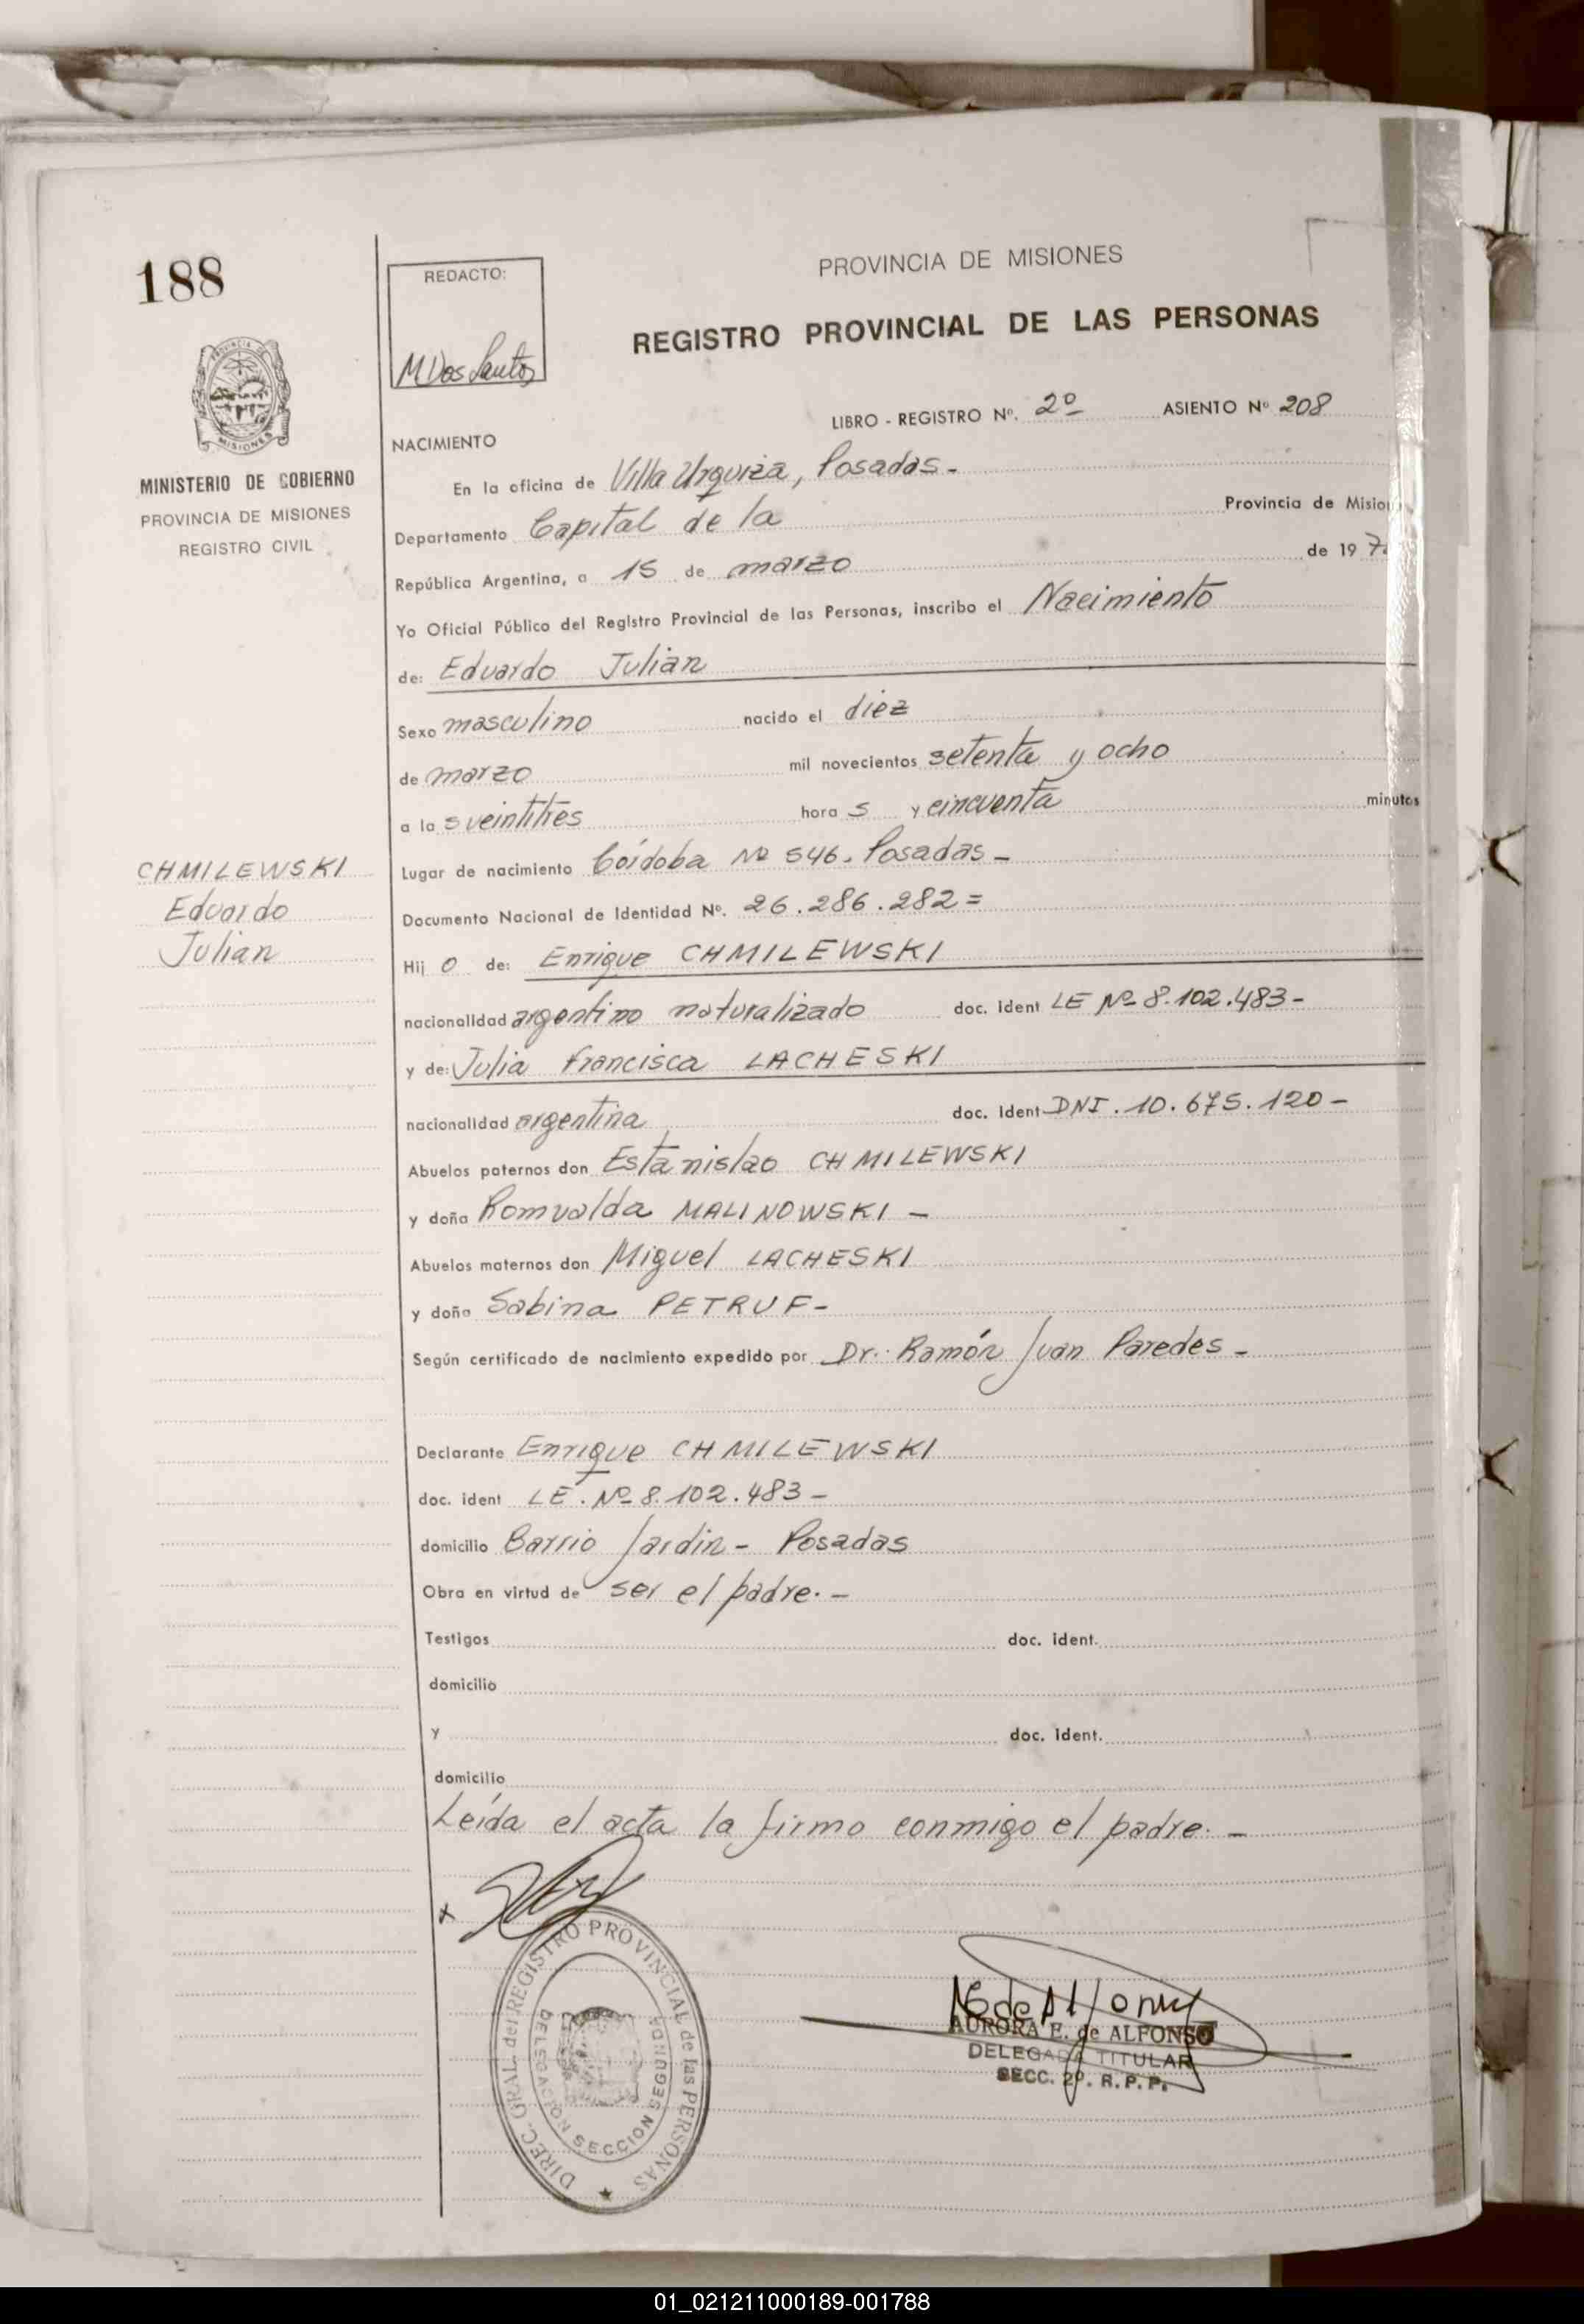 188
REDACTO:
M Dos Santos
PROVINCIA DE MISIONES
REGISTRO PROVINCIAL DE LAS PERSONAS
PROVINCIA DE
MISIONES
MINISTERIO DE GOBIERNO
PROVINCIA DE MISIONES
REGISTRO CIVIL
LIBRO - REGISTRO Nº. 2º ASIENTO Nº 208
NACIMIENTO
En la oficina de Villa Urquiza, Posadas.-
Departamento Capital de la Provincia de Mision
República Argentina, a 15 de marzo de 197
Yo Oficial Público del Registro Provincial de las Personas, inscribo el Nacimiento
de: Eduardo Julian
Sexo masculino nacido el diez
de marzo mil novecientos setenta y ocho
a la s veintitres hora s y cincuenta minutos
Lugar de nacimiento Córdoba Nº 546. Posadas -
Documento Nacional de Identidad Nº. 26.286.282=
CHMILEWSKI
Eduardo
Julian
Hij o de: Enrique CHMILEWSKI
nacionalidad argentino naturalizado doc. ident LE Nº 8.102.483-
y de: Julia francisca LACHESKI
nacionalidad argentina doc. ident DNI. 10.675.120-
Abuelos paternos don Estanislao CHMILEWSKI
y doña Romualda MALINOWSKI -
Abuelos maternos don Miguel LACHESKI
y doña Sabina PETRUF-
Según certificado de nacimiento expedido por Dr. Ramón Juan Paredes -
Declarante Enrique CHMILEWSKI
doc. ident LE. Nº 8.102.483-
domicilio Barrio Jardin - Posadas
Obra en virtud de ser el padre.-
Testigos doc. ident.
domicilio
y doc. ident.
domicilio
Leída el acta la firmo conmigo el padre.-
x
DIREC. GRAL. del REGISTRO PROVINCIAL de las PERSONAS
DELEGACION SECCION SEGUNDA
AURORA E. de ALFONSO
DELEGADA TITULAR
SECC. 2º. R.P.P.
01_021211000189-001788